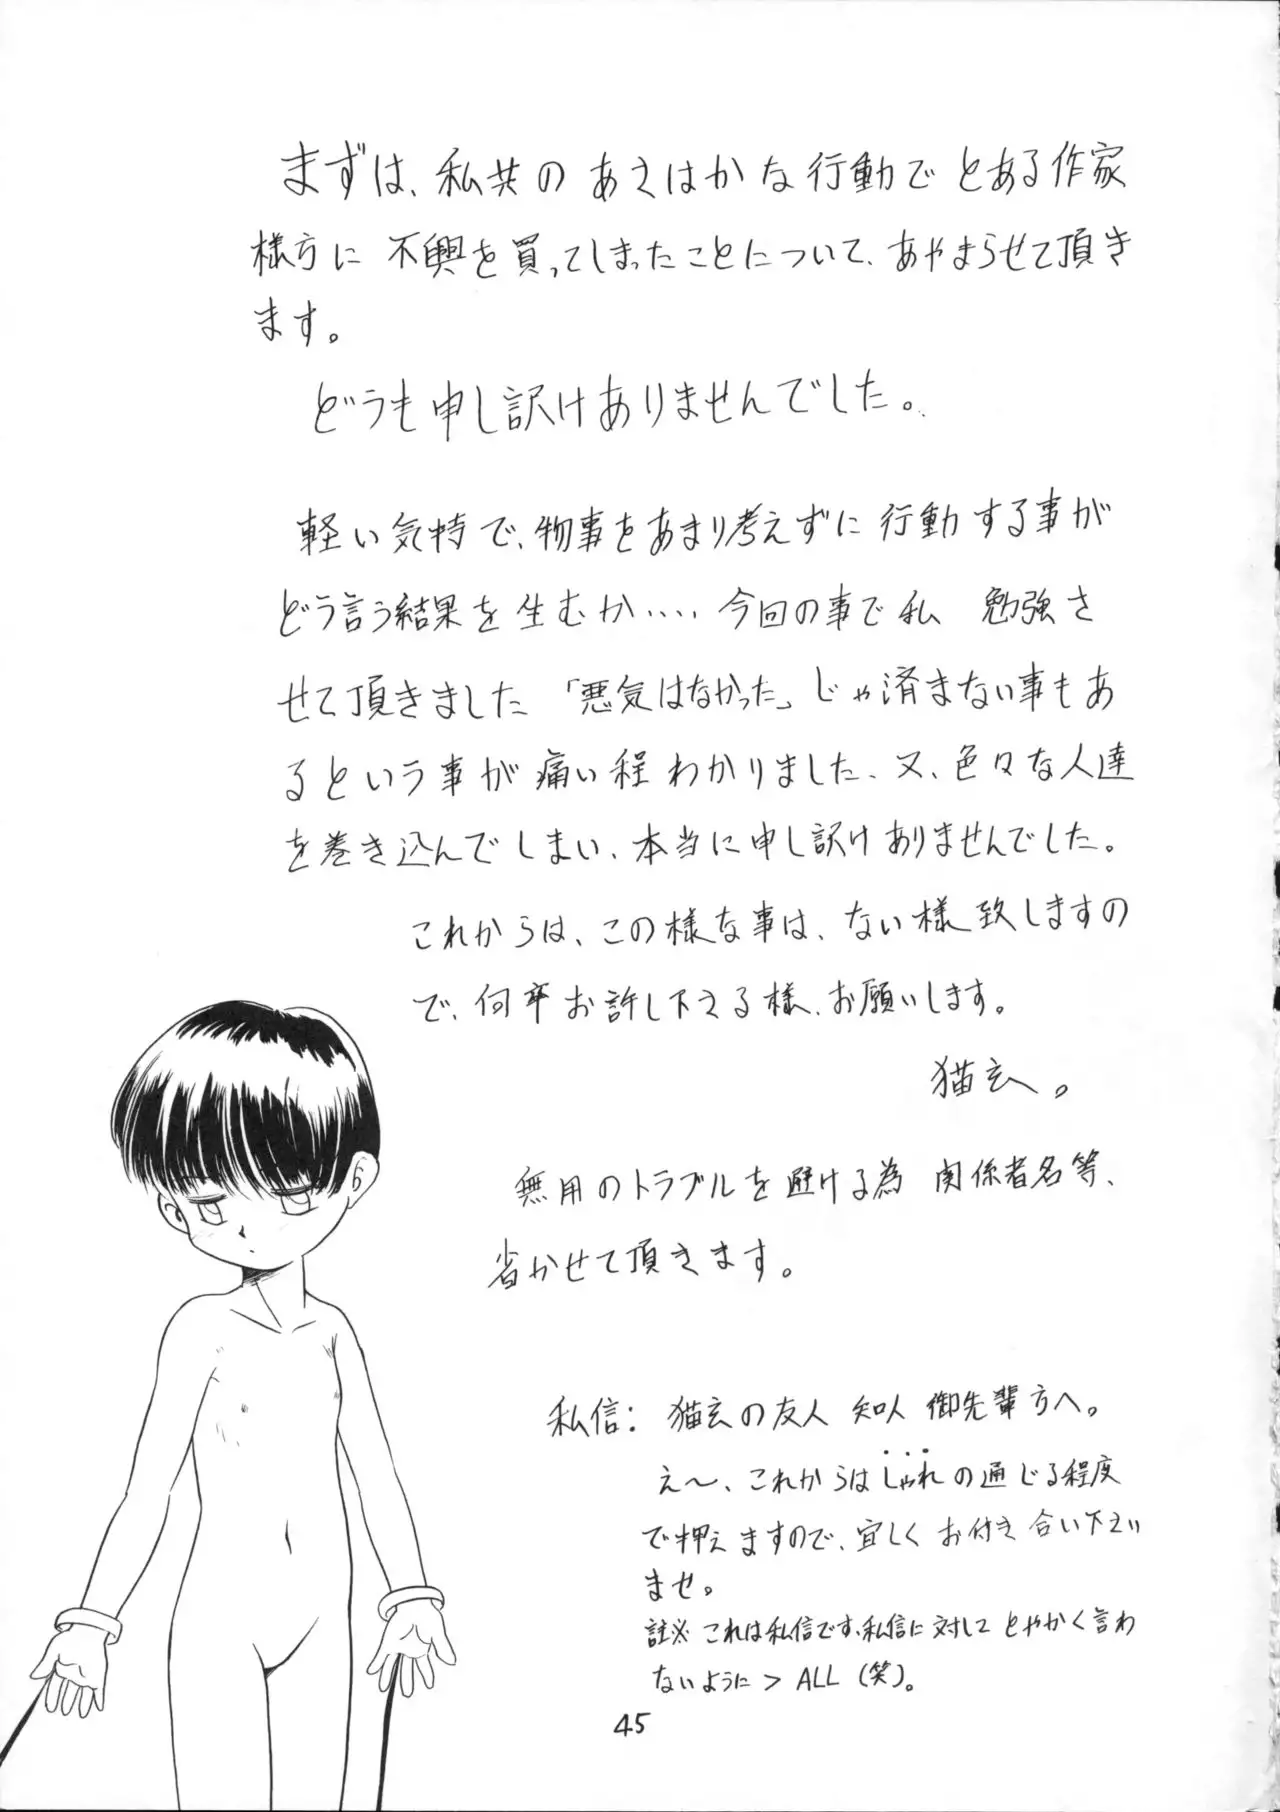 まずは、私共のあさはかな行動でとある作家
様方に不興を買ってしまったことについて、あやまらせて頂き
ます。
どうも申し訳けありませんでした。
軽い気持で、物事をあまり考えずに行動する事が
どう言う結果を生むか‥‥今回の事で私 勉強さ
せて頂きました「悪気はなかった」じゃ済まない事もあ
るという事が痛い程わかりました、又、色々な人達
を巻き込んでしまい、本当に申し訳けありませんでした。
これからは、この様な事は、ない様致しますの
で、何卒お許し下さる様、お願いします。
猫玄。
無用のトラブルを避ける為 関係者名等、
省かせて頂きます。
私信: 猫玄の友人 知人 御先輩方へ。
え〜、これからはしゃれの通じる程度
で押えますので、宜しくお付き合い下さい
ませ。
註※ これは私信です、私信に対してとやかく言わ
ないように > ALL (笑)。
45